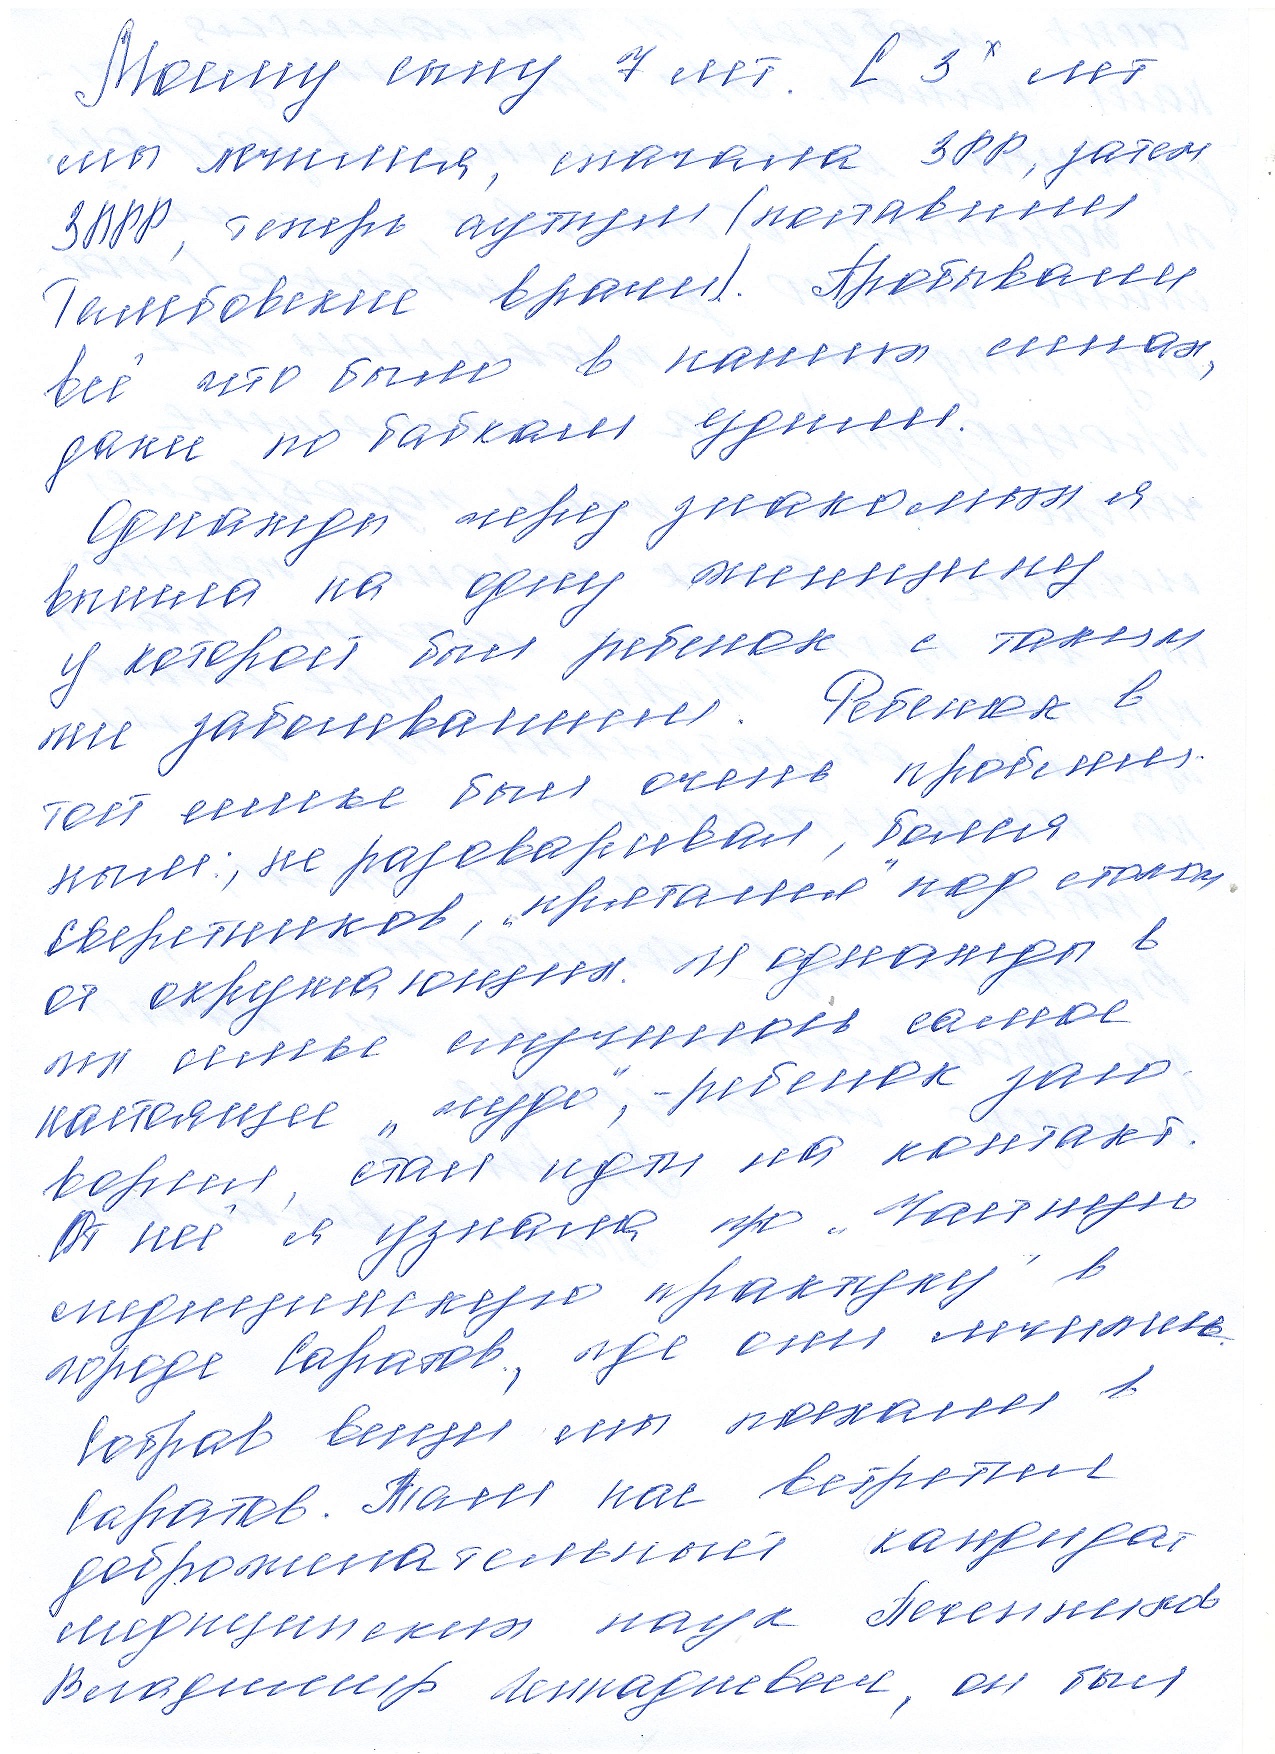 Моему сыну 7 лет. С 3х лет
мы лечимся, сначала ЗРР, затем
ЗПРР, теперь аутизм (поставили
Тамбовские врачи). Пробывали
всё что было в наших силах,
даже по бабкам ездили.
Однажды через знакомых я
вышла на одну женщину
у которой был ребенок с таким
же заболеванием. Ребенок в
той семье был очень проблем-
ным:, не разговаривал, боялся
сверстников, „прятался" под столом
от окружающих. И однажды в
их семье случилось самое
настоящее „чудо", - ребенок заго-
ворил, стал идти на контакт.
От неё я узнала про „Частную
медицинскую практику" в
городе Саратов., где они лечились.
Собрав вещи мы поехали в
Саратов. Там нас встретил
доброжелательный кандидат
медицинских наук Печенников
Владимир Геннадиевич, он был